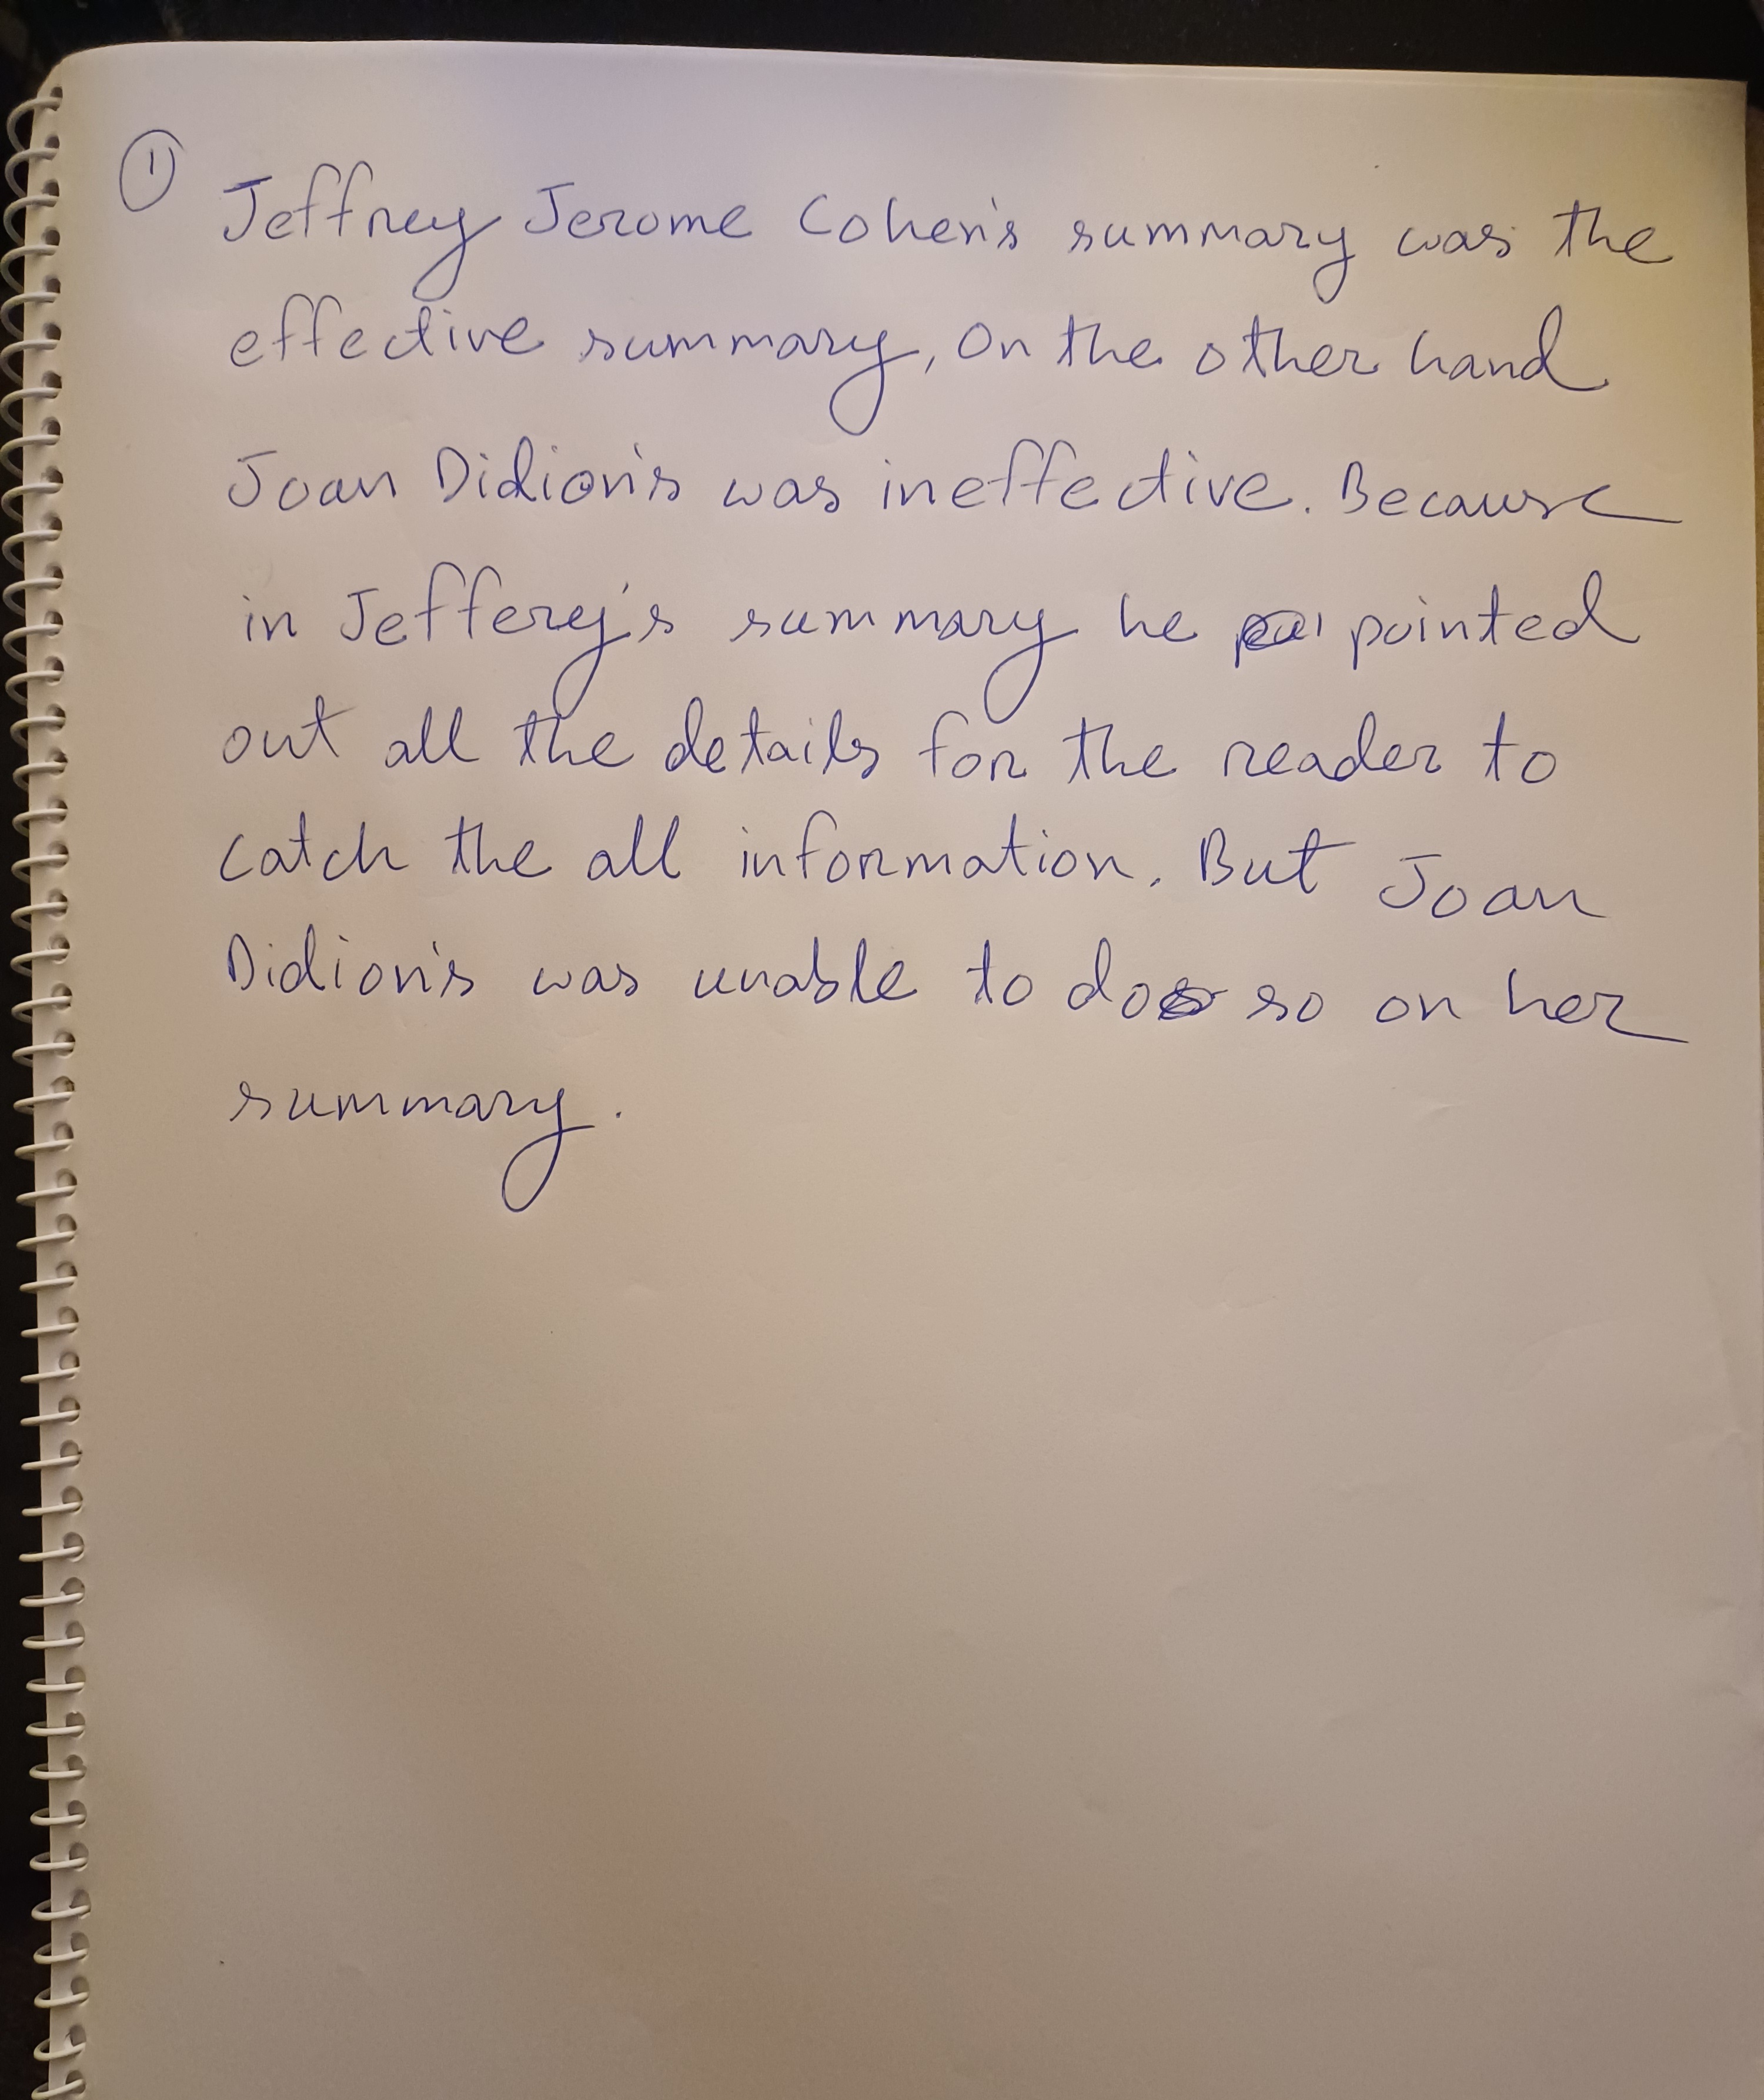 ① Jeffrey Jerome Cohen's summary was the
effective summary, On the other hand
Joan Didion's was ineffective. Because
in Jefferey's summary he pointed
out all the details for the reader to
catch the all information. But Joan
Didion's was unable to do so on her
summary.